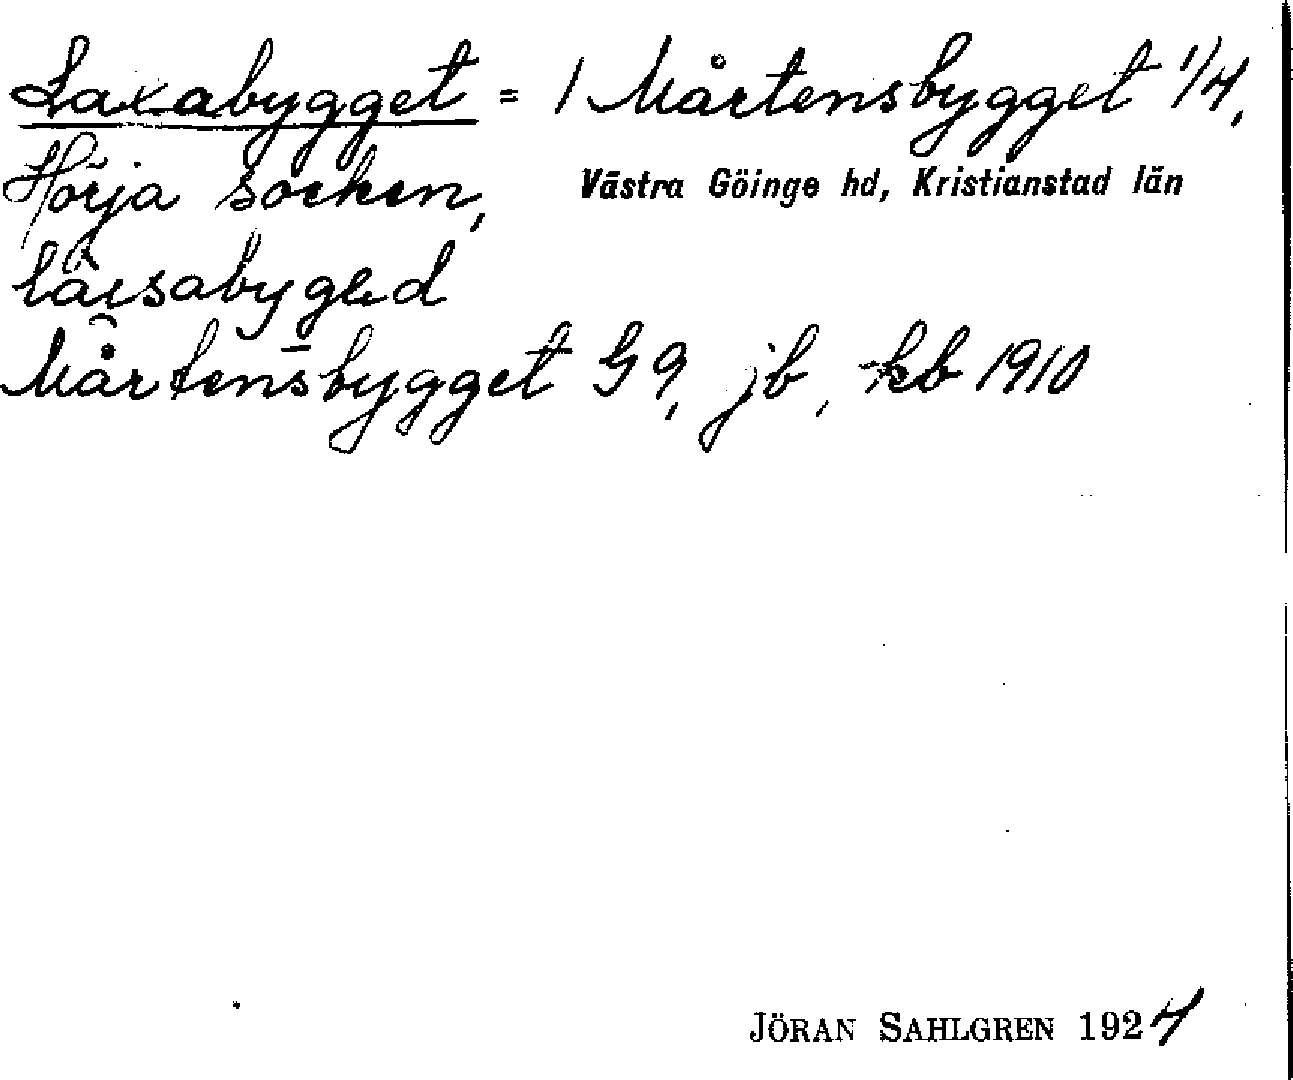 Laxabygget = 1 Mårtensbygget 1/4,
Hörja socken, Västra Göinge hd, Kristianstad län
Mårtensbygget G9, jb, kb 1910
JÖRAN SAHLGREN 1924